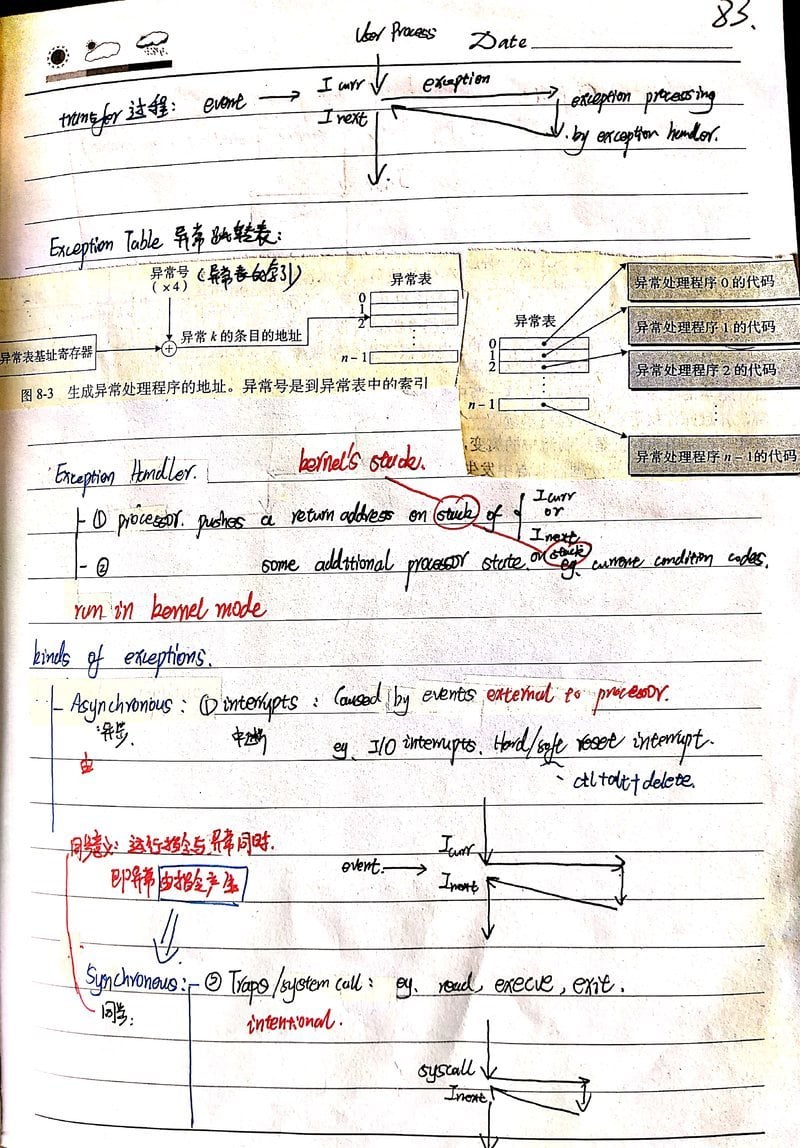 83.
User Process
Date
transfer 过程: event → I curr exception exception processing
I next by exception handler.
Exception Table 异常跳转表:
异常号 (异常表的索引)
(×4)
异常表
0
1
2
n-1
异常 k 的条目的地址
异常表基址寄存器
+
图 8-3 生成异常处理程序的地址。异常号是到异常表中的索引
异常表
0
1
2
n-1
异常处理程序 0 的代码
异常处理程序 1 的代码
异常处理程序 2 的代码
异常处理程序 n-1 的代码
Exception Handler.
kernel's stack.
① processor pushes a return address on stack of { I curr
or
I next
② some additional processor state on stack eg. current condition codes.
run in kernel mode
kinds of exceptions.
Asynchronous: ① interrupts: Caused by events external to processor.
异步. 中断 eg. I/O interrupts. Hard/soft reset interrupt.
由
ctl+alt+delete.
同步意义: 运行指令与异常同时.
即异常由指令产生
event → I curr
I next
Synchronous: ② Traps/system call: eg. read, execve, exit.
同步: intentional.
syscall
I next